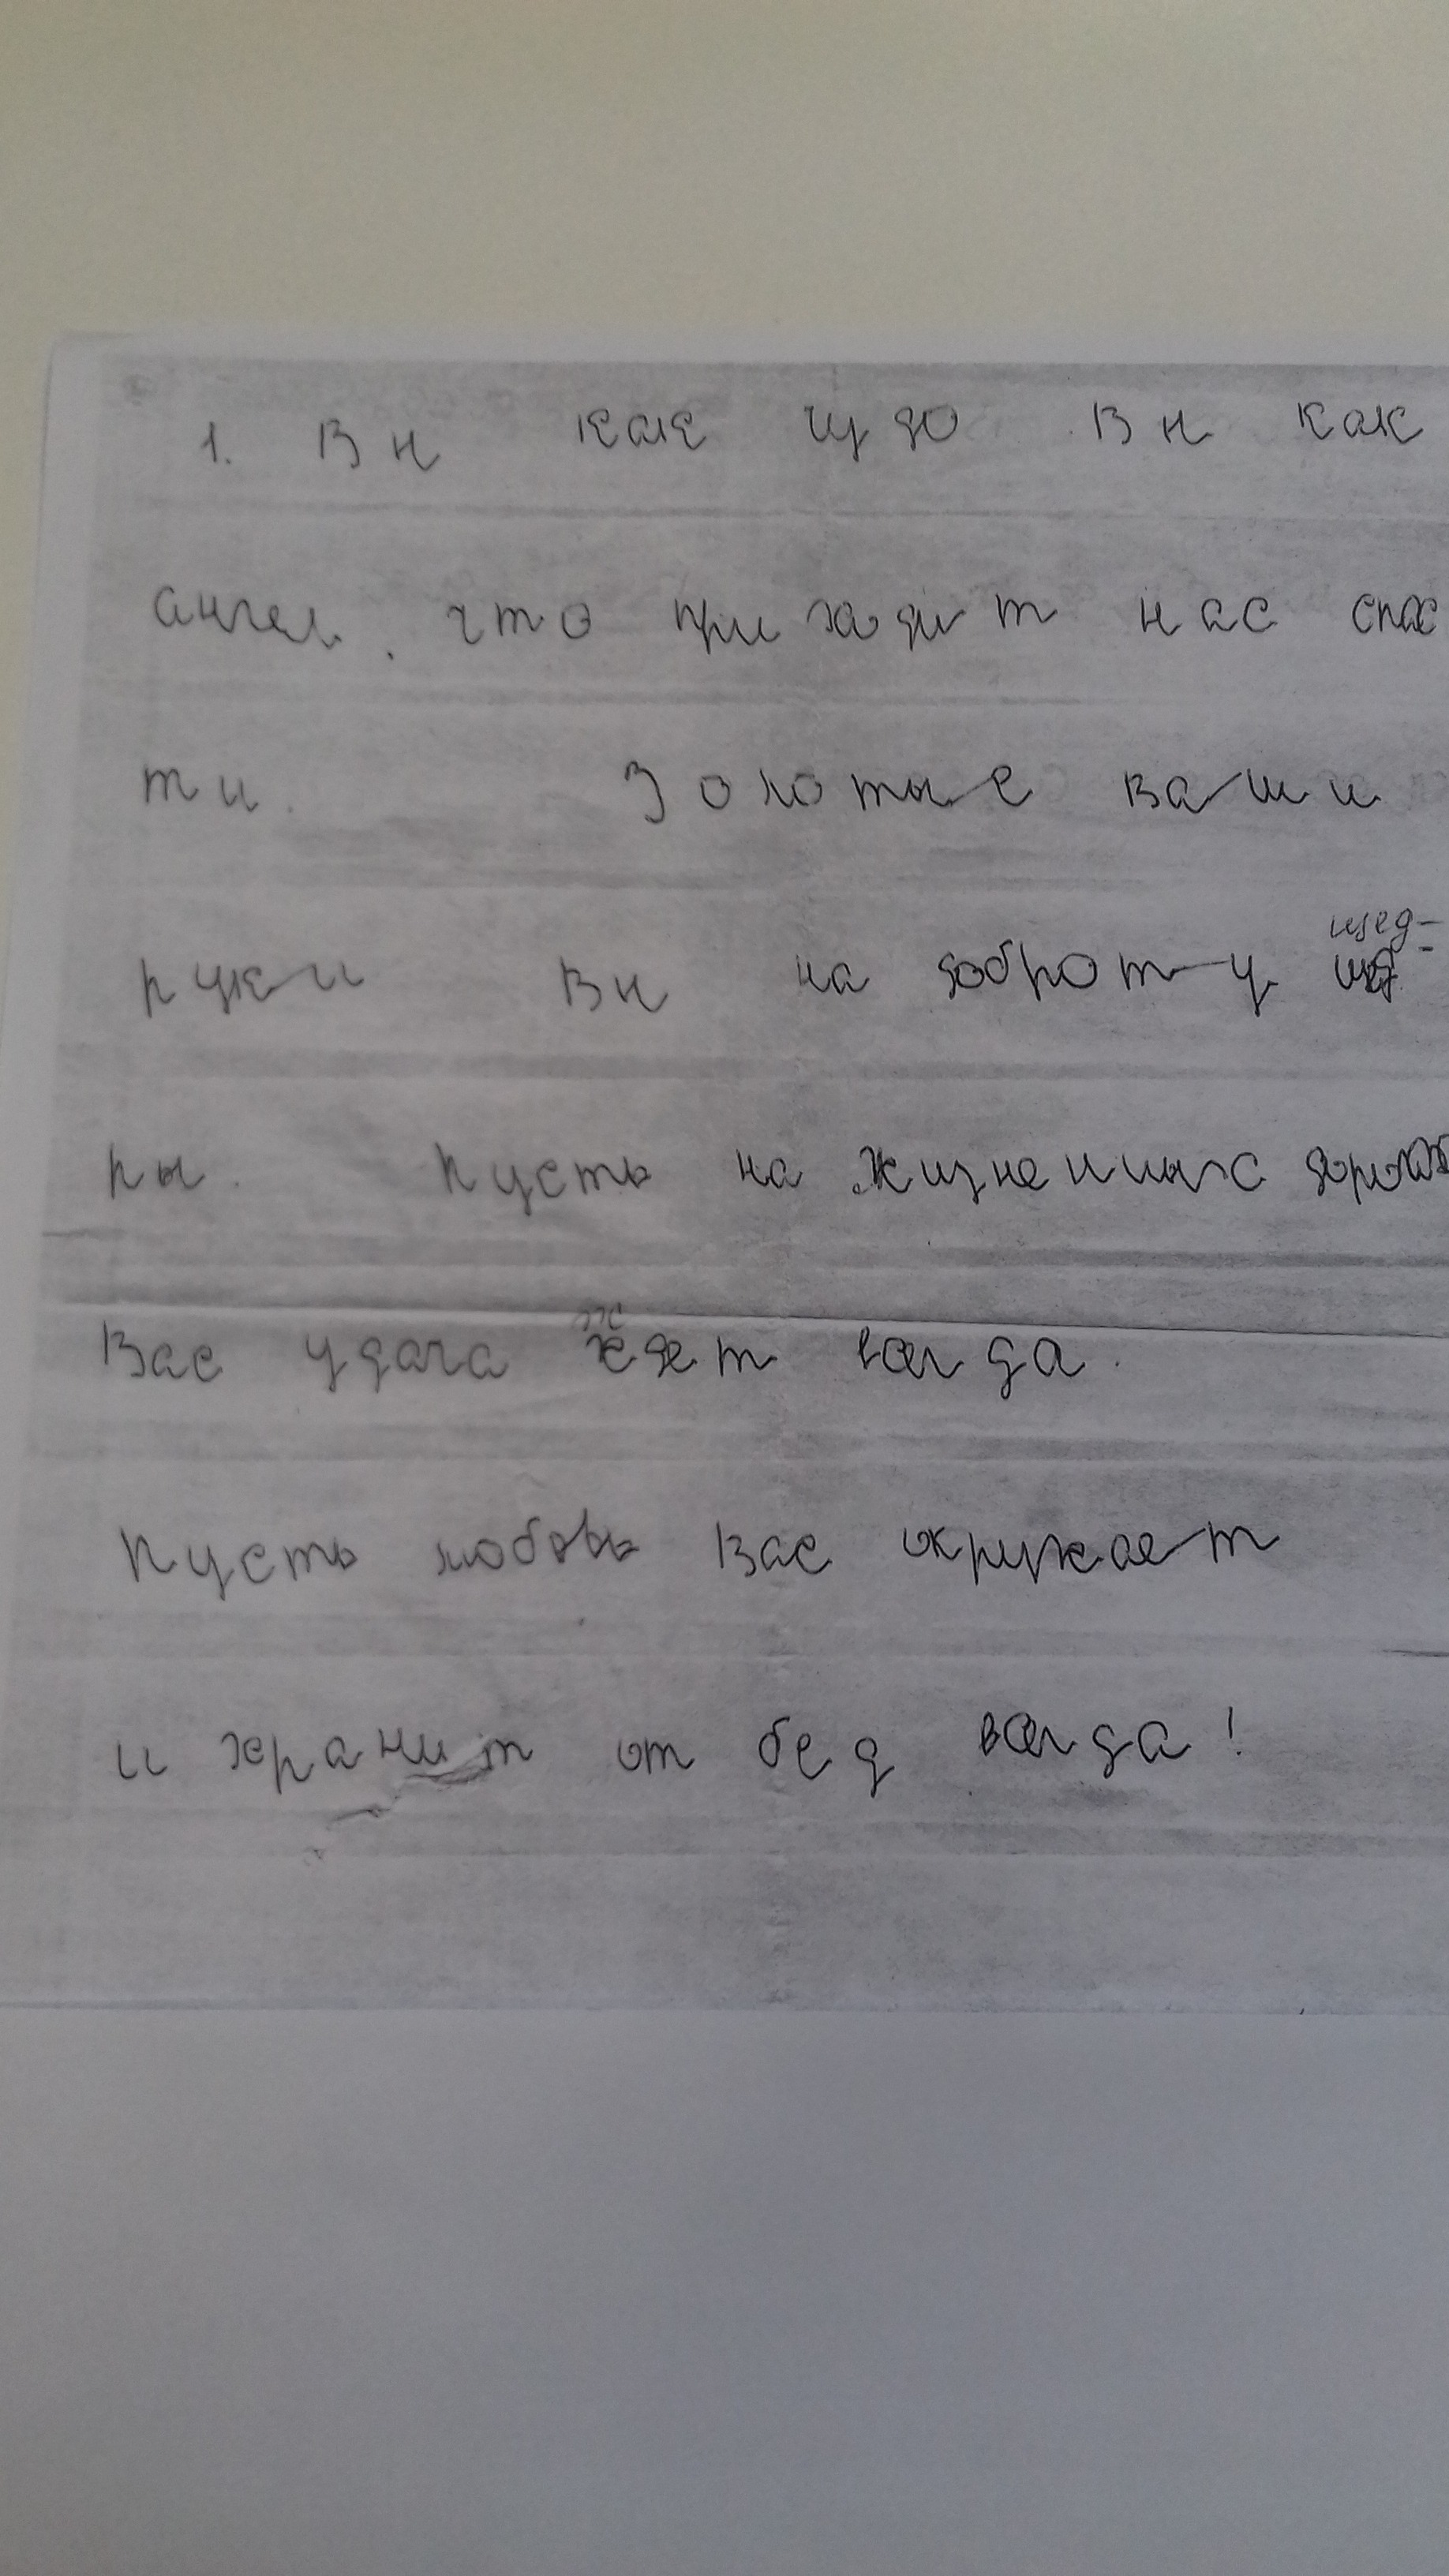 1. Вы как чудо Вы как
ангел, что приходит нас спас
ти. Золотые ваши
руки Вы на доброту щед-
ры. Пусть на жизненных дорогах
Вас удача ждет всегда.
Пусть любовь Вас окружает
и хранит от бед всегда!